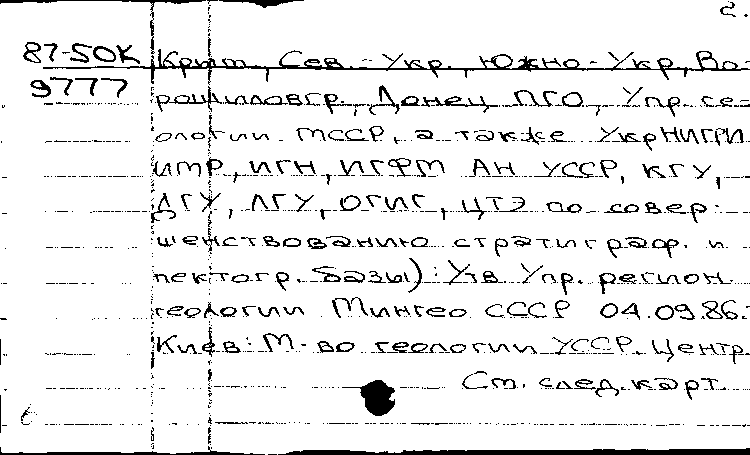 2.
87-50К Крым., Сев.-Укр., Южно-Укр., Во-
9777 рошиловгр., Донец ПГО, Упр. ге-
ологии МССР, а также УкрНИГРИ
ИМР, ИГН, ИГФМ АН УССР, КГУ,
ДГУ, ЛГУ, ОГИГ, ЦТЭ по совер-
шенствованию стратиграф. и
петрогр. базы): Утв Упр. регион.
геологии Мингео СССР 04.09.86.-
Киев: М-во геологии УССР. Центр
См. след. карт.